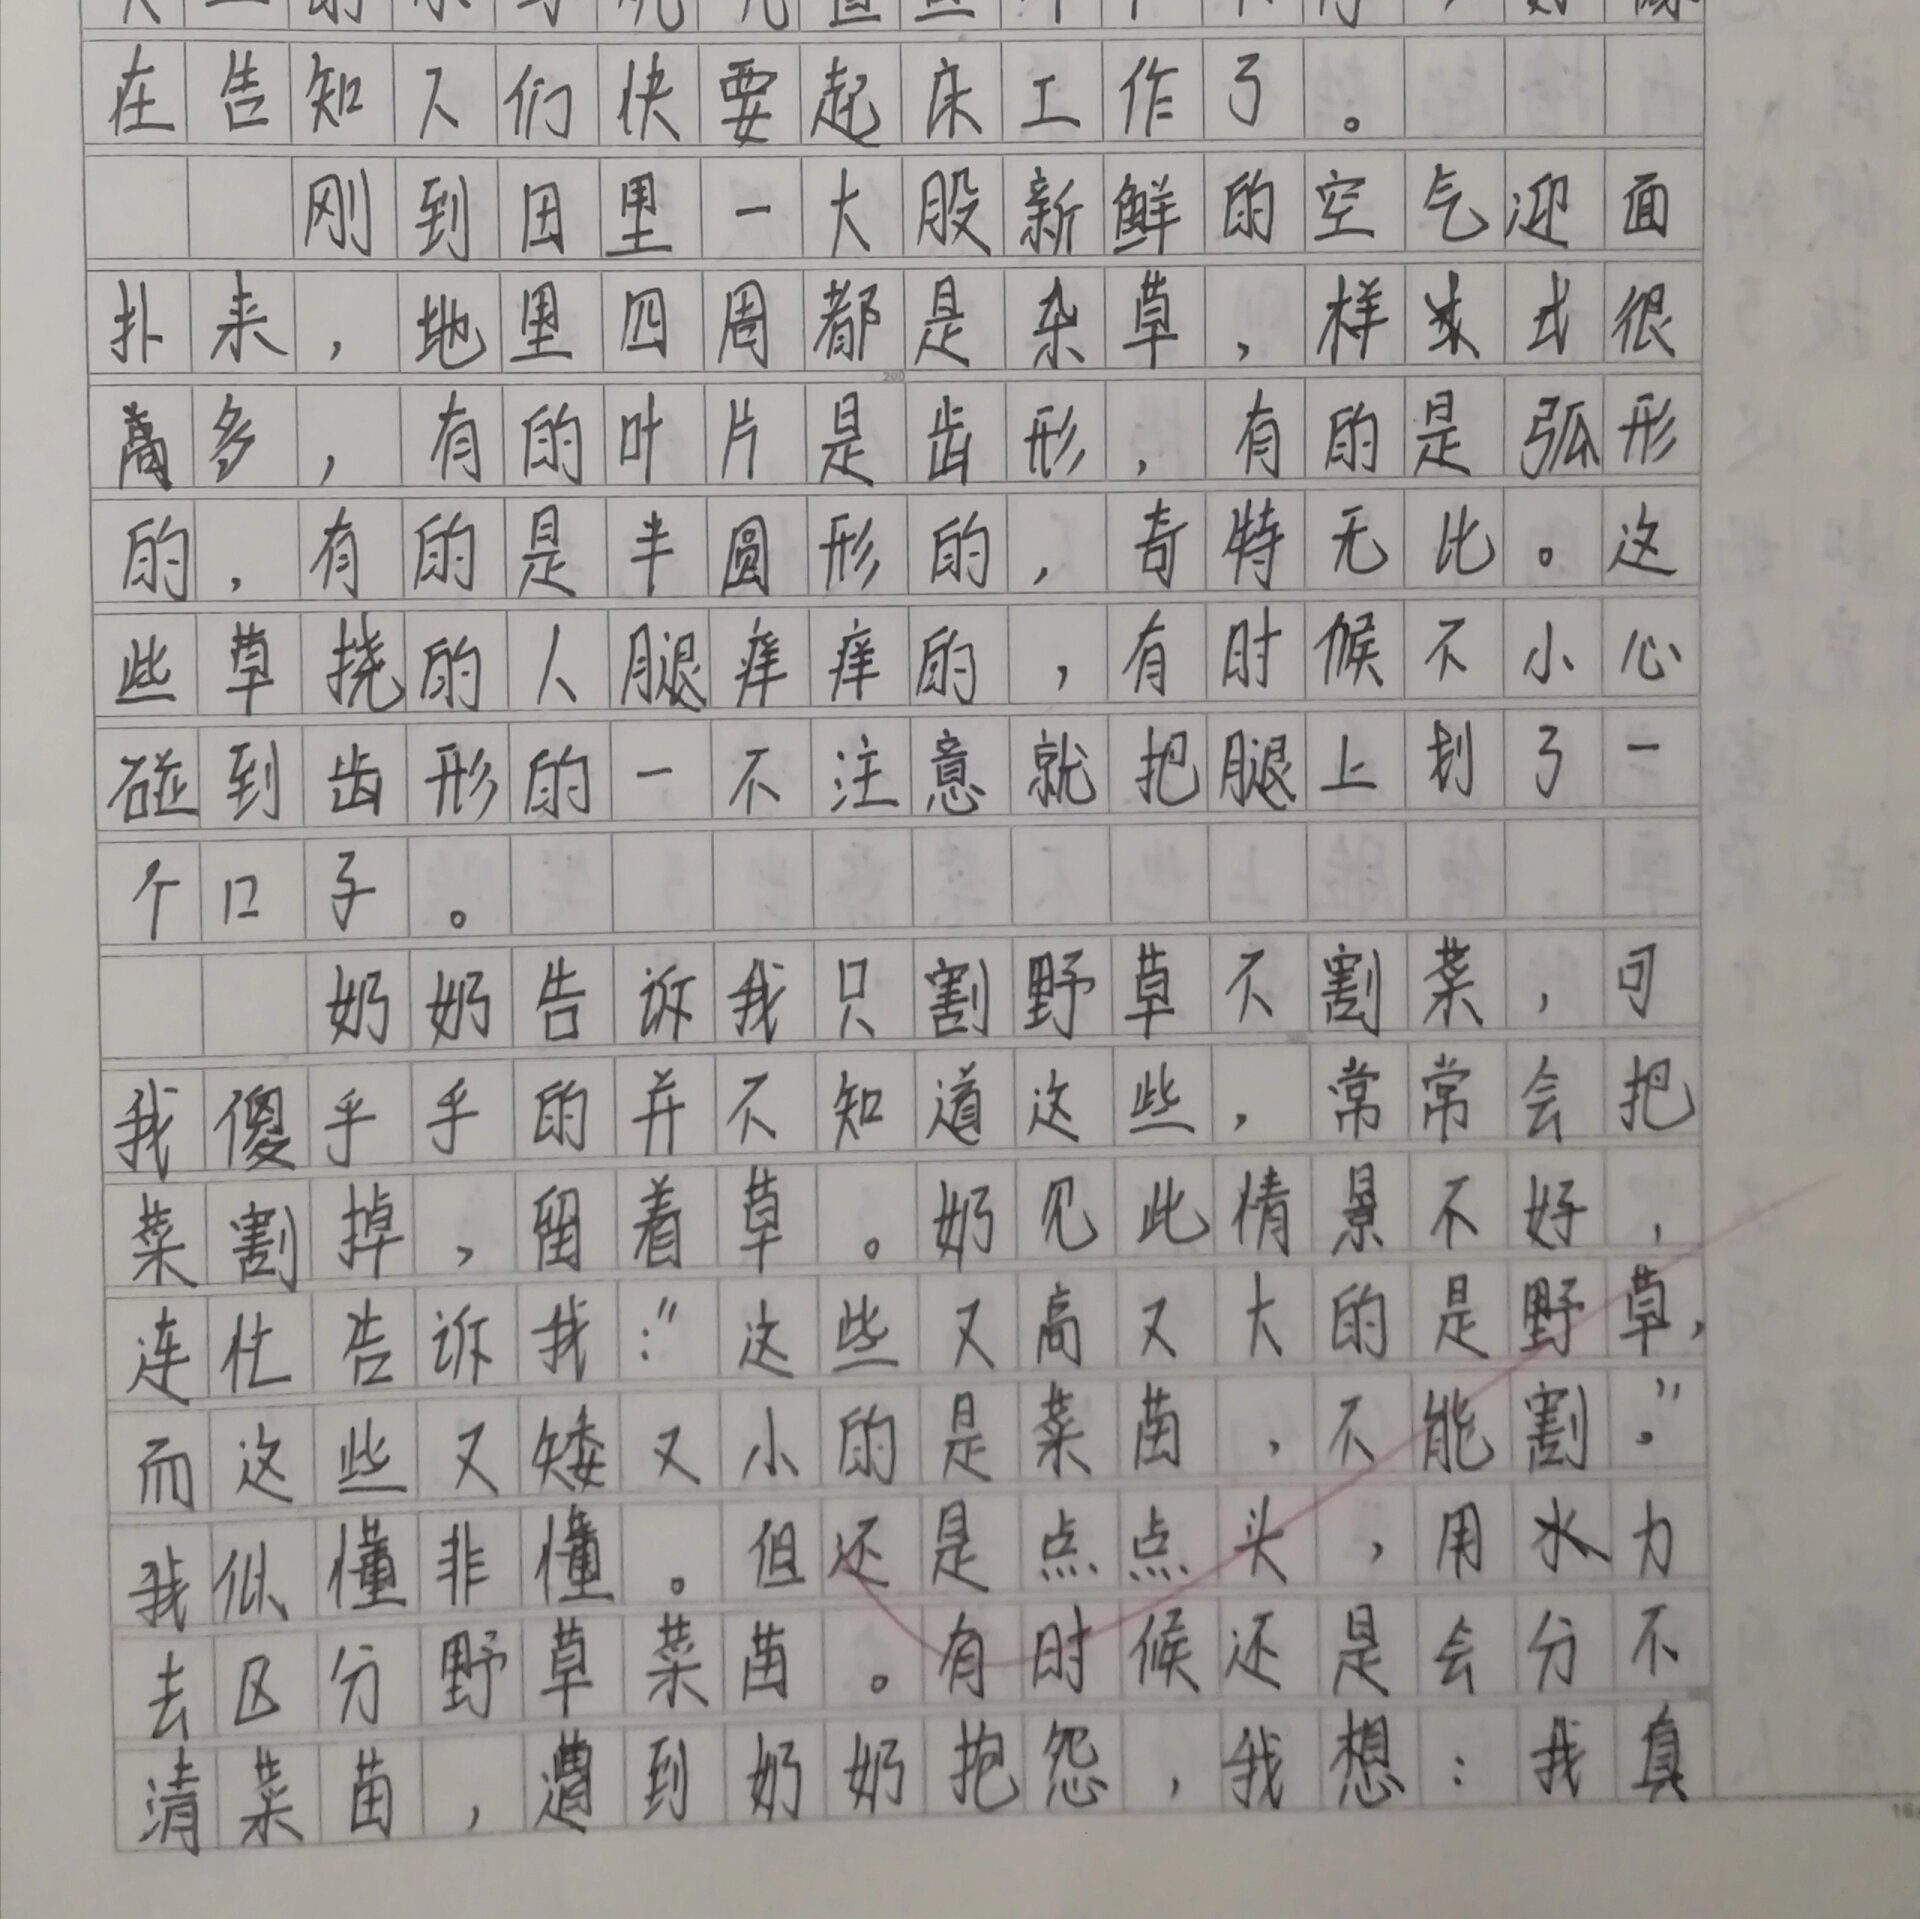 在告知人们快要起床工作了。
刚到田里一大股新鲜的空气迎面
扑来，地里四周都是杂草，样式很
多，有的叶片是齿形，有的是弧形
的，有的是半圆形的，奇特无比。这
些草挠的人腿痒痒的，有时候不小心
碰到齿形的一不注意就把腿上划了一
个口子。
奶奶告诉我只割野草不割菜，可
我傻乎乎的并不知道这些，常常会把
菜割掉，留着草。奶见此情景不好，
连忙告诉我："这些又高又大的是野草，
而这些又矮又小的是菜苗，不能割。"
我似懂非懂。但还是点点头，用水力
去区分野草菜苗。有时候还是会分不
清菜苗，遭到奶奶抱怨，我想：我真